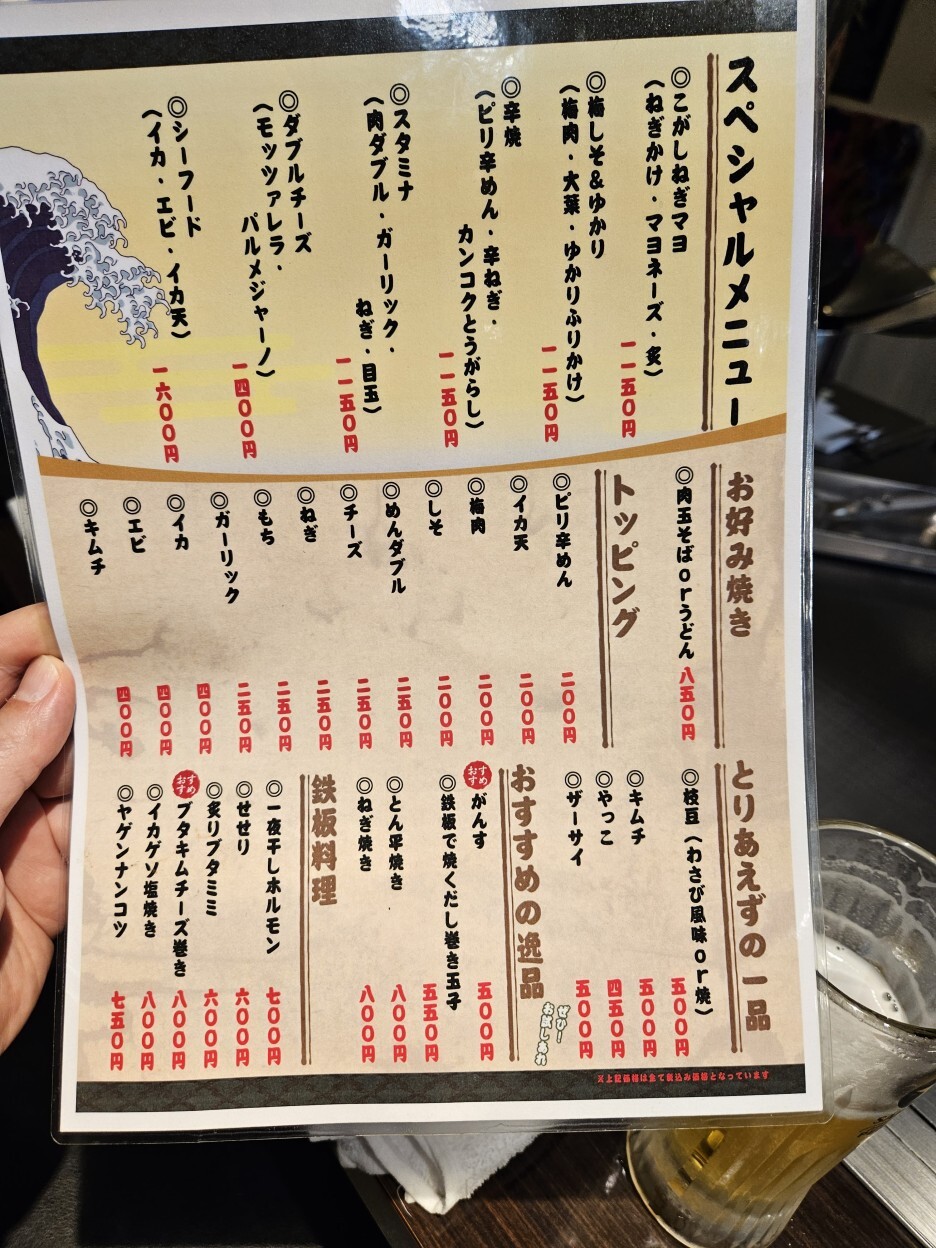 スペシャルメニュー
◎こがしねぎマヨ
（ねぎかけ・マヨネーズ・炙）
一一五〇円
◎梅しそ&ゆかり
（梅肉・大葉・ゆかりふりかけ）
一一五〇円
◎辛焼
（ピリ辛めん・辛ねぎ・
カンコクとうがらし）
一一五〇円
◎スタミナ
（肉ダブル・ガーリック・
ねぎ・目玉）
一一五〇円
◎ダブルチーズ
（モッツァレラ・
パルメジャーノ）
一四〇〇円
◎シーフード
（イカ・エビ・イカ天）
一六〇〇円
お好み焼き
◎肉玉そばorうどん 八五〇円
トッピング
◎ピリ辛めん 二〇〇円
◎イカ天 二〇〇円
◎梅肉 二〇〇円
◎しそ 二〇〇円
◎めんダブル 二五〇円
◎チーズ 二五〇円
◎ねぎ 二五〇円
◎もち 二五〇円
◎ガーリック 二五〇円
◎イカ 四〇〇円
◎エビ 四〇〇円
◎キムチ 四〇〇円
とりあえずの一品
◎枝豆（わさび風味or焼） 五〇〇円
◎キムチ 五〇〇円
◎やっこ 四五〇円
◎ザーサイ 五〇〇円
おすすめの逸品
ぜひ!
お試しあれ
おすすめ
がんす 五〇〇円
◎鉄板で焼くだし巻き玉子 五五〇円
◎とん平焼き 八〇〇円
◎ねぎ焼き 八〇〇円
鉄板料理
◎一夜干しホルモン 七〇〇円
◎せせり 六〇〇円
◎炙りブタミミ 六〇〇円
おすすめ
ブタキムチーズ巻き 八〇〇円
◎イカゲソ塩焼き 八〇〇円
◎ヤゲンナンコツ 七五〇円
※上記価格は全て税込み価格となっています